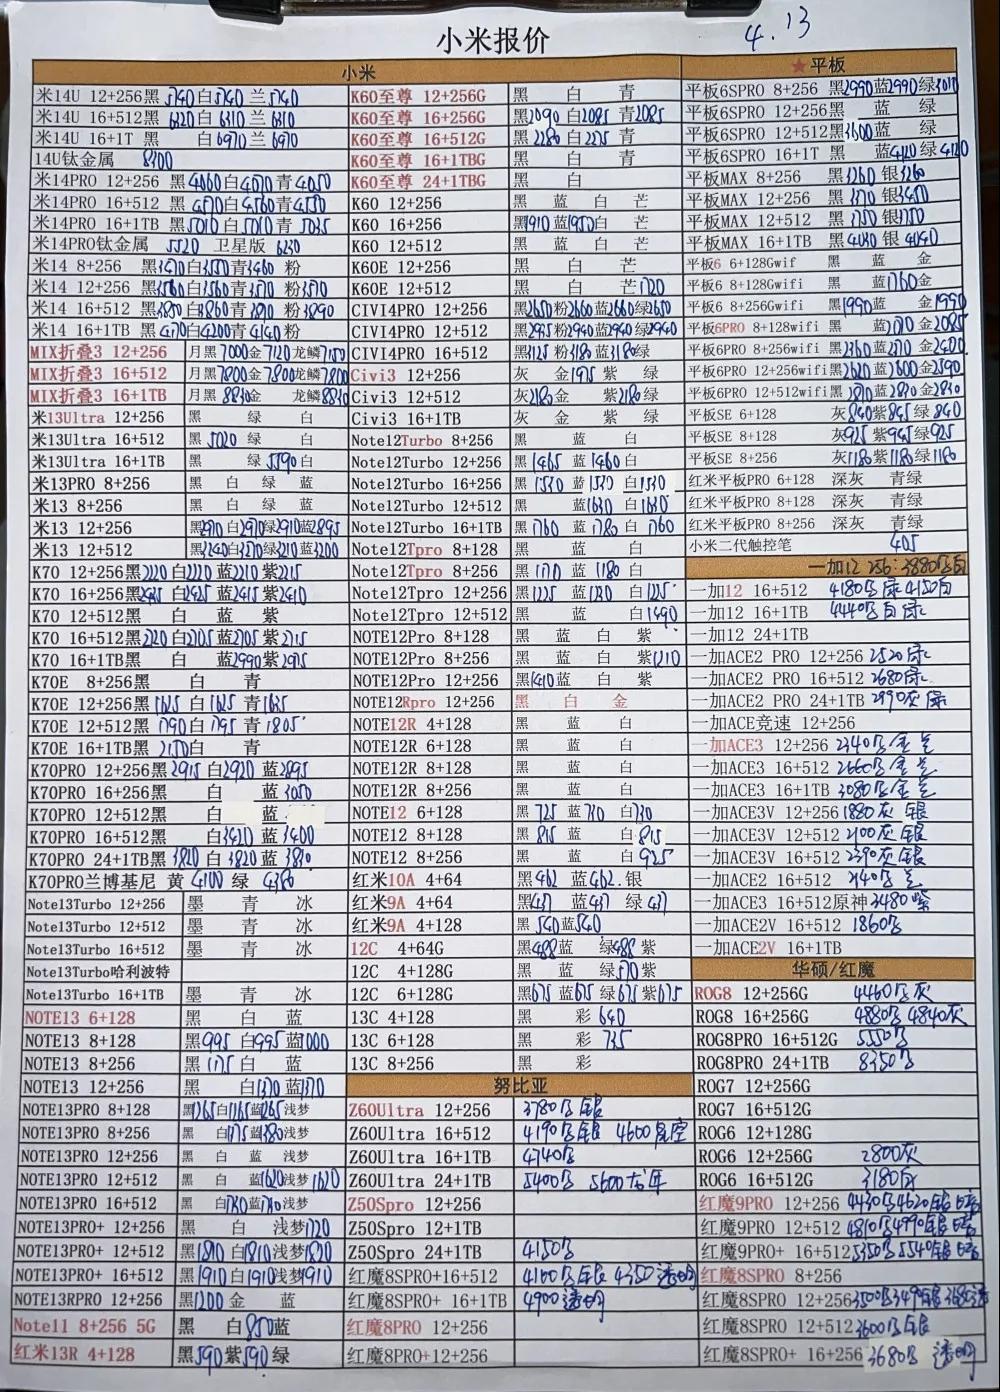 小米报价
4.13
小米
米14U 12+256黑 5740白5740 兰5740
米14U 16+512黑 6320白6310 兰6310
米14U 16+1T 黑 白6970兰6970
14U钛金属 8200
米14PRO 12+256 黑4060白4070青4050
米14PRO 16+512 黑4570白4560青4550
米14PRO 16+1TB 黑5010白5010青5035
米14PRO钛金属 5520 卫星版 6230
米14 8+256 黑3470白3550青3460粉
米14 12+256 黑3560白3560青3570粉3570
米14 16+512 黑3890白3860青3890粉3890
米14 16+1TB 黑4170白4200青4140粉
MIX折叠3 12+256 月黑7000金7120龙鳞7150
MIX折叠3 16+512 月黑7800金7800龙鳞7800
MIX折叠3 16+1TB 月黑8830金 龙鳞8830
米13Ultra 12+256 黑 绿 白
米13Ultra 16+512 黑5020 绿 白
米13Ultra 16+1TB 黑 绿5590白
米13PRO 8+256 黑 白 绿 蓝
米13 8+256 黑 白 绿 蓝
米13 12+256 黑2970白2970绿2910蓝2895
米13 12+512 黑3240白3270绿3210蓝3200
K70 12+256黑2220 白2220 蓝2210 紫2215
K70 16+256黑2425 白2425 蓝2415 紫2410
K70 12+512黑 白 蓝 紫
K70 16+512黑2720 白2705 蓝2705 紫2715
K70 16+1TB黑 白 蓝2990紫2915
K70E 8+256黑 白 青
K70E 12+256黑1625 白1625 青1635
K70E 12+512黑1790白1795 青1805
K70E 16+1TB黑2150白 青
K70PRO 12+256黑2915 白2920 蓝2895
K70PRO 16+256黑 白 蓝3050
K70PRO 12+512黑 白 蓝
K70PRO 16+512黑 白3420 蓝3400
K70PRO 24+1TB黑3820 白3820 蓝3810
K70PRO兰博基尼 黄 4100 绿 4380
Note13Turbo 12+256 墨 青 冰
Note13Turbo 12+512 墨 青 冰
Note13Turbo 16+512 墨 青 冰
Note13Turbo哈利波特
Note13Turbo 16+1TB 墨 青 冰
NOTE13 6+128 黑 白 蓝
NOTE13 8+128 黑995 白995蓝1000
NOTE13 8+256 黑1175白 蓝
NOTE13 12+256 黑 白1370蓝1370
NOTE13PRO 8+128 黑1265白1265蓝1265浅梦
NOTE13PRO 8+256 黑 白1375蓝1380浅梦
NOTE13PRO 12+256 黑 白 蓝 浅梦
NOTE13PRO 12+512 黑 白 蓝1620浅梦1620
NOTE13PRO 16+512 黑 白1780蓝1780浅梦
NOTE13PRO+ 12+256 黑 白 浅梦1720
NOTE13PRO+ 12+512 黑1810白1810浅梦1820
NOTE13PRO+ 16+512 黑1910白1910浅梦1910
NOTE13RPRO 12+256 黑1200金 蓝
Note11 8+256 5G 黑 白850蓝
红米13R 4+128 黑590紫590绿
K60至尊 12+256G 黑 白 青
K60至尊 16+256G 黑2090白2085青2085
K60至尊 16+512G 黑2280白2275青
K60至尊 16+1TBG 黑 白 青
K60至尊 24+1TBG 黑 白
K60 12+256 黑 蓝 白 芒
K60 16+256 黑1910蓝1950白 芒
K60 12+512 黑 蓝 白 芒
K60E 12+256 黑 白 芒
K60E 12+512 黑 白 芒1720
CIVI4PRO 12+256 黑2650粉2660蓝2660绿2650
CIVI4PRO 12+512 黑2935粉2940蓝2940绿2940
CIVI4PRO 16+512 黑3125粉3180蓝3180绿
Civi3 12+256 灰 金1975紫 绿
Civi3 12+512 灰2180金 紫2180绿
Civi3 16+1TB 灰 金 紫 绿
Note12Turbo 8+256 黑 蓝 白
Note12Turbo 12+256 黑1465 蓝1460白
Note12Turbo 16+256 黑1530 蓝1530 白1530
Note12Turbo 12+512 黑 蓝1630白1630
Note12Turbo 16+1TB 黑1760 蓝1780白1760
Note12Tpro 8+128 黑 蓝 白
Note12Tpro 8+256 黑1170 蓝1180白
Note12Tpro 12+256 黑1225 蓝1230 白1225
Note12Tpro 12+512 黑 蓝 白1490
NOTE12Pro 8+128 黑 蓝 白 紫
NOTE12Pro 8+256 黑 蓝 白 紫1210
NOTE12Pro 12+256 黑1410蓝 白 紫
NOTE12Rpro 12+256 黑 白 金
NOTE12R 4+128 黑 蓝 白
NOTE12R 6+128 黑 蓝 白
NOTE12R 8+128 黑 蓝 白
NOTE12R 8+256 黑 蓝 白
NOTE12 6+128 黑725 蓝730 白730
NOTE12 8+128 黑815 蓝 白815
NOTE12 8+256 黑 蓝 白925
红米10A 4+64 黑462 蓝462.银
红米9A 4+64 黑437 蓝437 绿437
红米9A 4+128 黑540蓝540
12C 4+64G 黑488蓝 绿488紫
12C 4+128G 黑 蓝 绿570紫
12C 6+128G 黑675蓝675绿675紫675
13C 4+128 黑 彩640
13C 6+128 黑 彩735
13C 8+256 黑 彩
努比亚
Z60Ultra 12+256 3780黑 银
Z60Ultra 16+512 4190黑银 4600星空
Z60Ultra 16+1TB 4740黑
Z60Ultra 24+1TB 5400黑 5600龙年
Z50Spro 12+256
Z50Spro 12+1TB
Z50Spro 24+1TB 4150黑
红魔8SPRO+16+512 4160黑银 4350透明
红魔8SPRO+ 16+1TB 4900透明
红魔8PRO 12+256
红魔8PRO+12+256
★平板
平板6SPRO 8+256 黑2990蓝2990绿3010
平板6SPRO 12+256黑 蓝 绿
平板6SPRO 12+512黑3600蓝 绿
平板6SPRO 16+1T 黑 蓝4120绿4120
平板MAX 8+256 黑3260银3260
平板MAX 12+256 黑3470银3450
平板MAX 12+512 黑3750银3750
平板MAX 16+1TB 黑4080银4040
平板6 6+128Gwif 黑 蓝 金
平板6 8+128Gwifi 黑 蓝1760金
平板6 8+256Gwifi 黑1990蓝 金1990
平板6PRO 8+128wifi 黑 蓝2070金2085
平板6PRO 8+256wifi 黑2360蓝2370金2420
平板6PRO 12+256wifi黑2620蓝2600金2590
平板6PRO 12+512wifi黑2870蓝2830金2830
平板SE 6+128 灰840紫845绿840
平板SE 8+128 灰925紫945绿925
平板SE 8+256 灰1180紫1180绿1180
红米平板PRO 6+128 深灰 青绿
红米平板PRO 8+128 深灰 青绿
红米平板PRO 8+256 深灰 青绿
小米二代触控笔 405
一加12 256:3880黑白
一加12 16+512 4180黑绿4150白
一加12 16+1TB 4440黑白绿
一加12 24+1TB
一加ACE2 PRO 12+256 2520绿
一加ACE2 PRO 16+512 2680绿
一加ACE2 PRO 24+1TB 2990灰绿
一加ACE竞速 12+256
一加ACE3 12+256 2340黑金兰
一加ACE3 16+512 2660黑金兰
一加ACE3 16+1TB 3080黑金兰
一加ACE3V 12+256 1880灰 银
一加ACE3V 12+512 2100灰 银
一加ACE3V 16+512 2390灰银
一加ACE2 16+512 2140黑兰
一加ACE3 16+512原神3480紫
一加ACE2V 16+512 1860黑
一加ACE2V 16+1TB
华硕/红魔
ROG8 12+256G 4460黑灰
ROG8 16+256G 4880黑 4840灰
ROG8PRO 16+512G 5550黑
ROG8PRO 24+1TB 8350黑
ROG7 12+256G
ROG7 16+512G
ROG6 12+128G
ROG6 12+256G 2800灰
ROG6 16+512G 3180白
红魔9PRO 12+256 4430黑4620银
红魔9PRO 12+512 4810黑4990银
红魔9PRO+ 16+512 5350黑5540银
红魔8SPRO 8+256
红魔8SPRO 12+256 3500黑3490银3680透
红魔8SPRO 12+512 3600黑银
红魔8SPRO+ 16+256 3680黑 透明